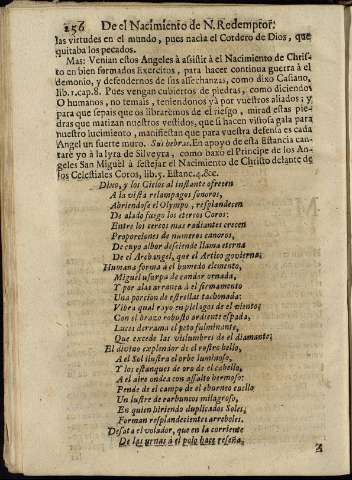 256 De el Nacimiento de N. Redemptor:
las virtudes en el mundo, pues nacia el Cordero de Dios, que
quitaba los pecados.
Mas: Venian estos Angeles à assistir à el Nacimiento de Chris-
to en bien formados Exercitos, para hacer continua guerra à el
demonio, y defendernos de sus assechanzas, como dixo Casiano,
lib. 1. cap. 8. Pues vengan cubiertos de piedras, como diciendo
O humanos, no temais, teniendonos yà por vuestros aliados; y
para que sepais que os librarèmos de el riesgo, mirad estas pie-
dras que matizan nuestros vestidos, que si hacen vistosa gala para
nuestro lucimiento, manifiestan que para vuestra defensa es cada
Angel un fuerte muro. En apoyo de esta Estancia can-
tarè yo à la lyra de Silveyra, como baxò el Principe de los An-
geles San Miguèl à festejar el Nacimiento de Christo delante de
los Celestiales Coros, lib. 5. Estanc. 4. &c.
Dixo, y los Cielos al instante ofrecen
A la vista relampagos sonoros,
Abriendose el Olympo, resplandecen
De alado fuego los etereos Coros:
Entre los cercos mas radiantes crecen
Proporciones de numeros canoros,
De cuyo albor desciende llama eterna
De el Archangel, que el Artico govierna;
Humana forma à el humedo elemento,
Miguel usurpa de candor ornada,
Y por alas arranca à el firmamento
Una porcion de estrellas tachonada:
Vibra qual rayo en pielagos de el viento;
Con el brazo robusto ardiente espada,
Luces derrama el peto fulminante,
Que excede las vislumbres de el diamante;
El divino explendor de el rostro bello,
A el Sol ilustra el orbe luminoso,
Y los estanques de oro de el cabello,
A el aire ondea con assalto hermoso:
Pende de el campo de el eborneo cuello
Un lustre de carbuncos milagroso,
En quien hiriendo duplicados Soles,
Forman resplandecientes arreboles.
Desata el volador, que en la corriente
De las urnas à el polo hace reseña,